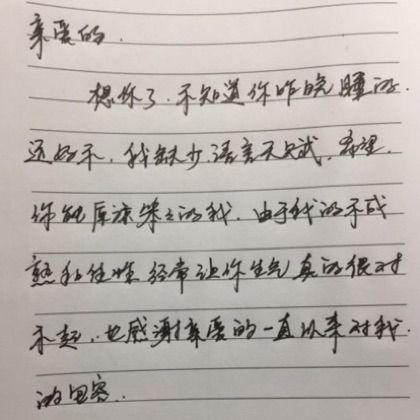 亲爱的.
想你了.不知道你昨晚睡的.
还好不.我缺少语言天赋.希望.
你能原凉笨笨的我.由于我的不成
熟和任性经常让你生气真的很对
不起.也感谢亲爱的一直以来对我.
的包容.